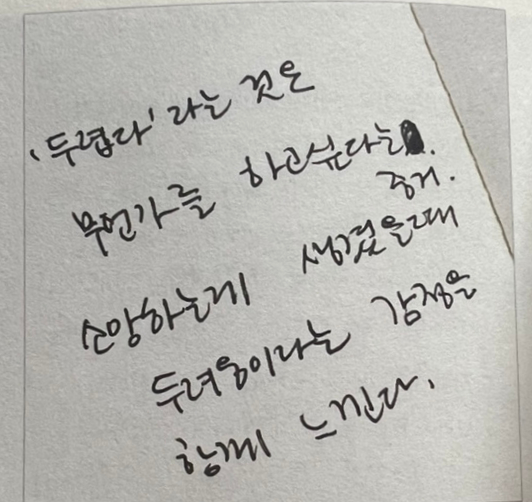 '두렵다'라는 것은
무언가를 하고싶다는
증거.
소망하는게 생겼을때
두려움이라는 감정을
함께 느낀다.